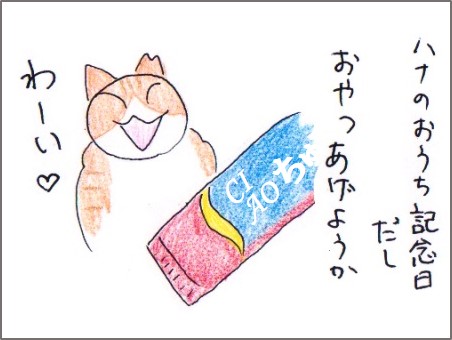 ハナのおうち記念日
だし
おやつあげようか
CI
AO
ちゅ
わーい♡